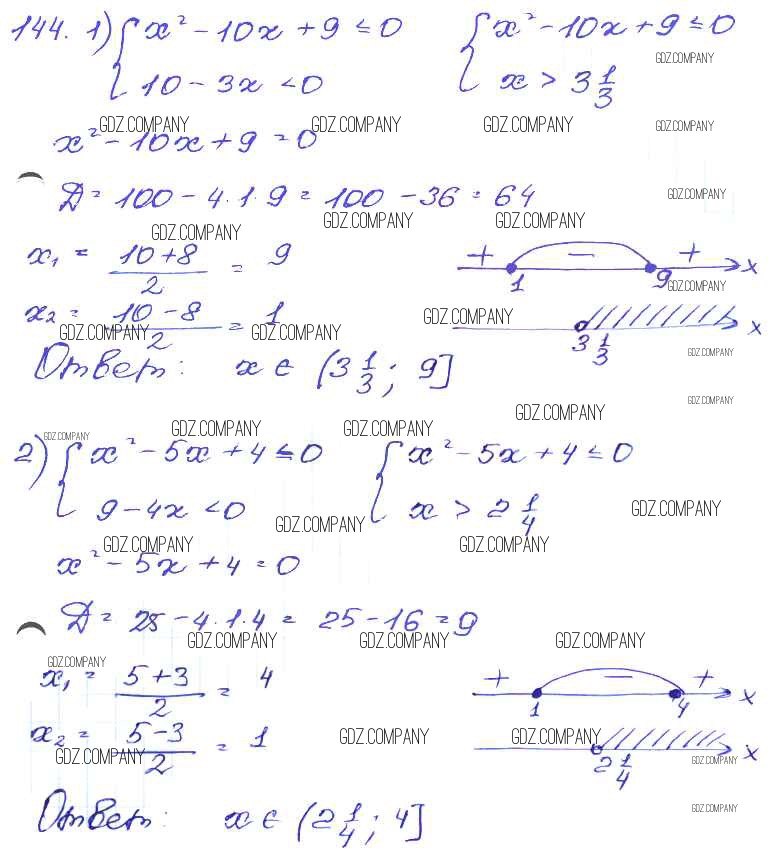 144. 1) { x² - 10x + 9 ≤ 0    { x² - 10x + 9 ≤ 0
10 - 3x < 0    x > 3 1/3
GDZ.COMPANY
GDZ.COMPANY GDZ.COMPANY GDZ.COMPANY GDZ.COMPANY
x² - 10x + 9 = 0
Д = 100 - 4·1·9 = 100 - 36 = 64
GDZ.COMPANY
GDZ.COMPANY GDZ.COMPANY GDZ.COMPANY
x₁ = (10+8)/2 = 9    + - + x
1 9
GDZ.COMPANY
x₂ = (10-8)/2 = 1    x
GDZ.COMPANY GDZ.COMPANY GDZ.COMPANY
3 1/3
GDZ.COMPANY
Ответ: x ∈ (3 1/3; 9]
GDZ.COMPANY
GDZ.COMPANY
GDZ.COMPANY GDZ.COMPANY GDZ.COMPANY
2) { x² - 5x + 4 ≤ 0    { x² - 5x + 4 ≤ 0
9 - 4x < 0    x > 2 1/4
GDZ.COMPANY GDZ.COMPANY
GDZ.COMPANY GDZ.COMPANY
x² - 5x + 4 = 0
Д = 25 - 4·1·4 = 25 - 16 = 9
GDZ.COMPANY GDZ.COMPANY GDZ.COMPANY
GDZ.COMPANY
x₁ = (5+3)/2 = 4    + - + x
1 4
x₂ = (5-3)/2 = 1    x
GDZ.COMPANY GDZ.COMPANY GDZ.COMPANY GDZ.COMPANY
2 1/4
GDZ.COMPANY
Ответ: x ∈ (2 1/4; 4]